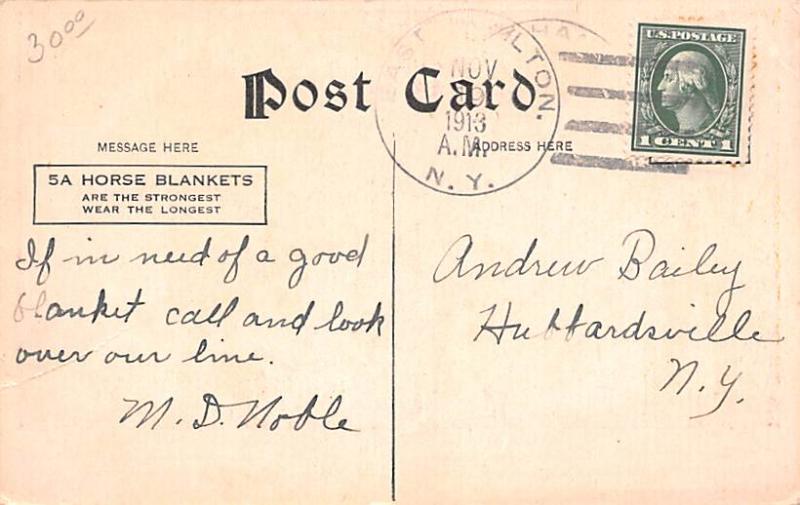 30⁰⁰
Post Card
EAST HAMILTON.
NOV
9
1913
A.M.
N. Y.
U.S. POSTAGE
1 CENT 1
MESSAGE HERE
ADDRESS HERE
5A HORSE BLANKETS
ARE THE STRONGEST
WEAR THE LONGEST
If in need of a good
blanket call and look
over our line.
M. D. Noble
Andrew Bailey
Hubbardsville
N.Y.